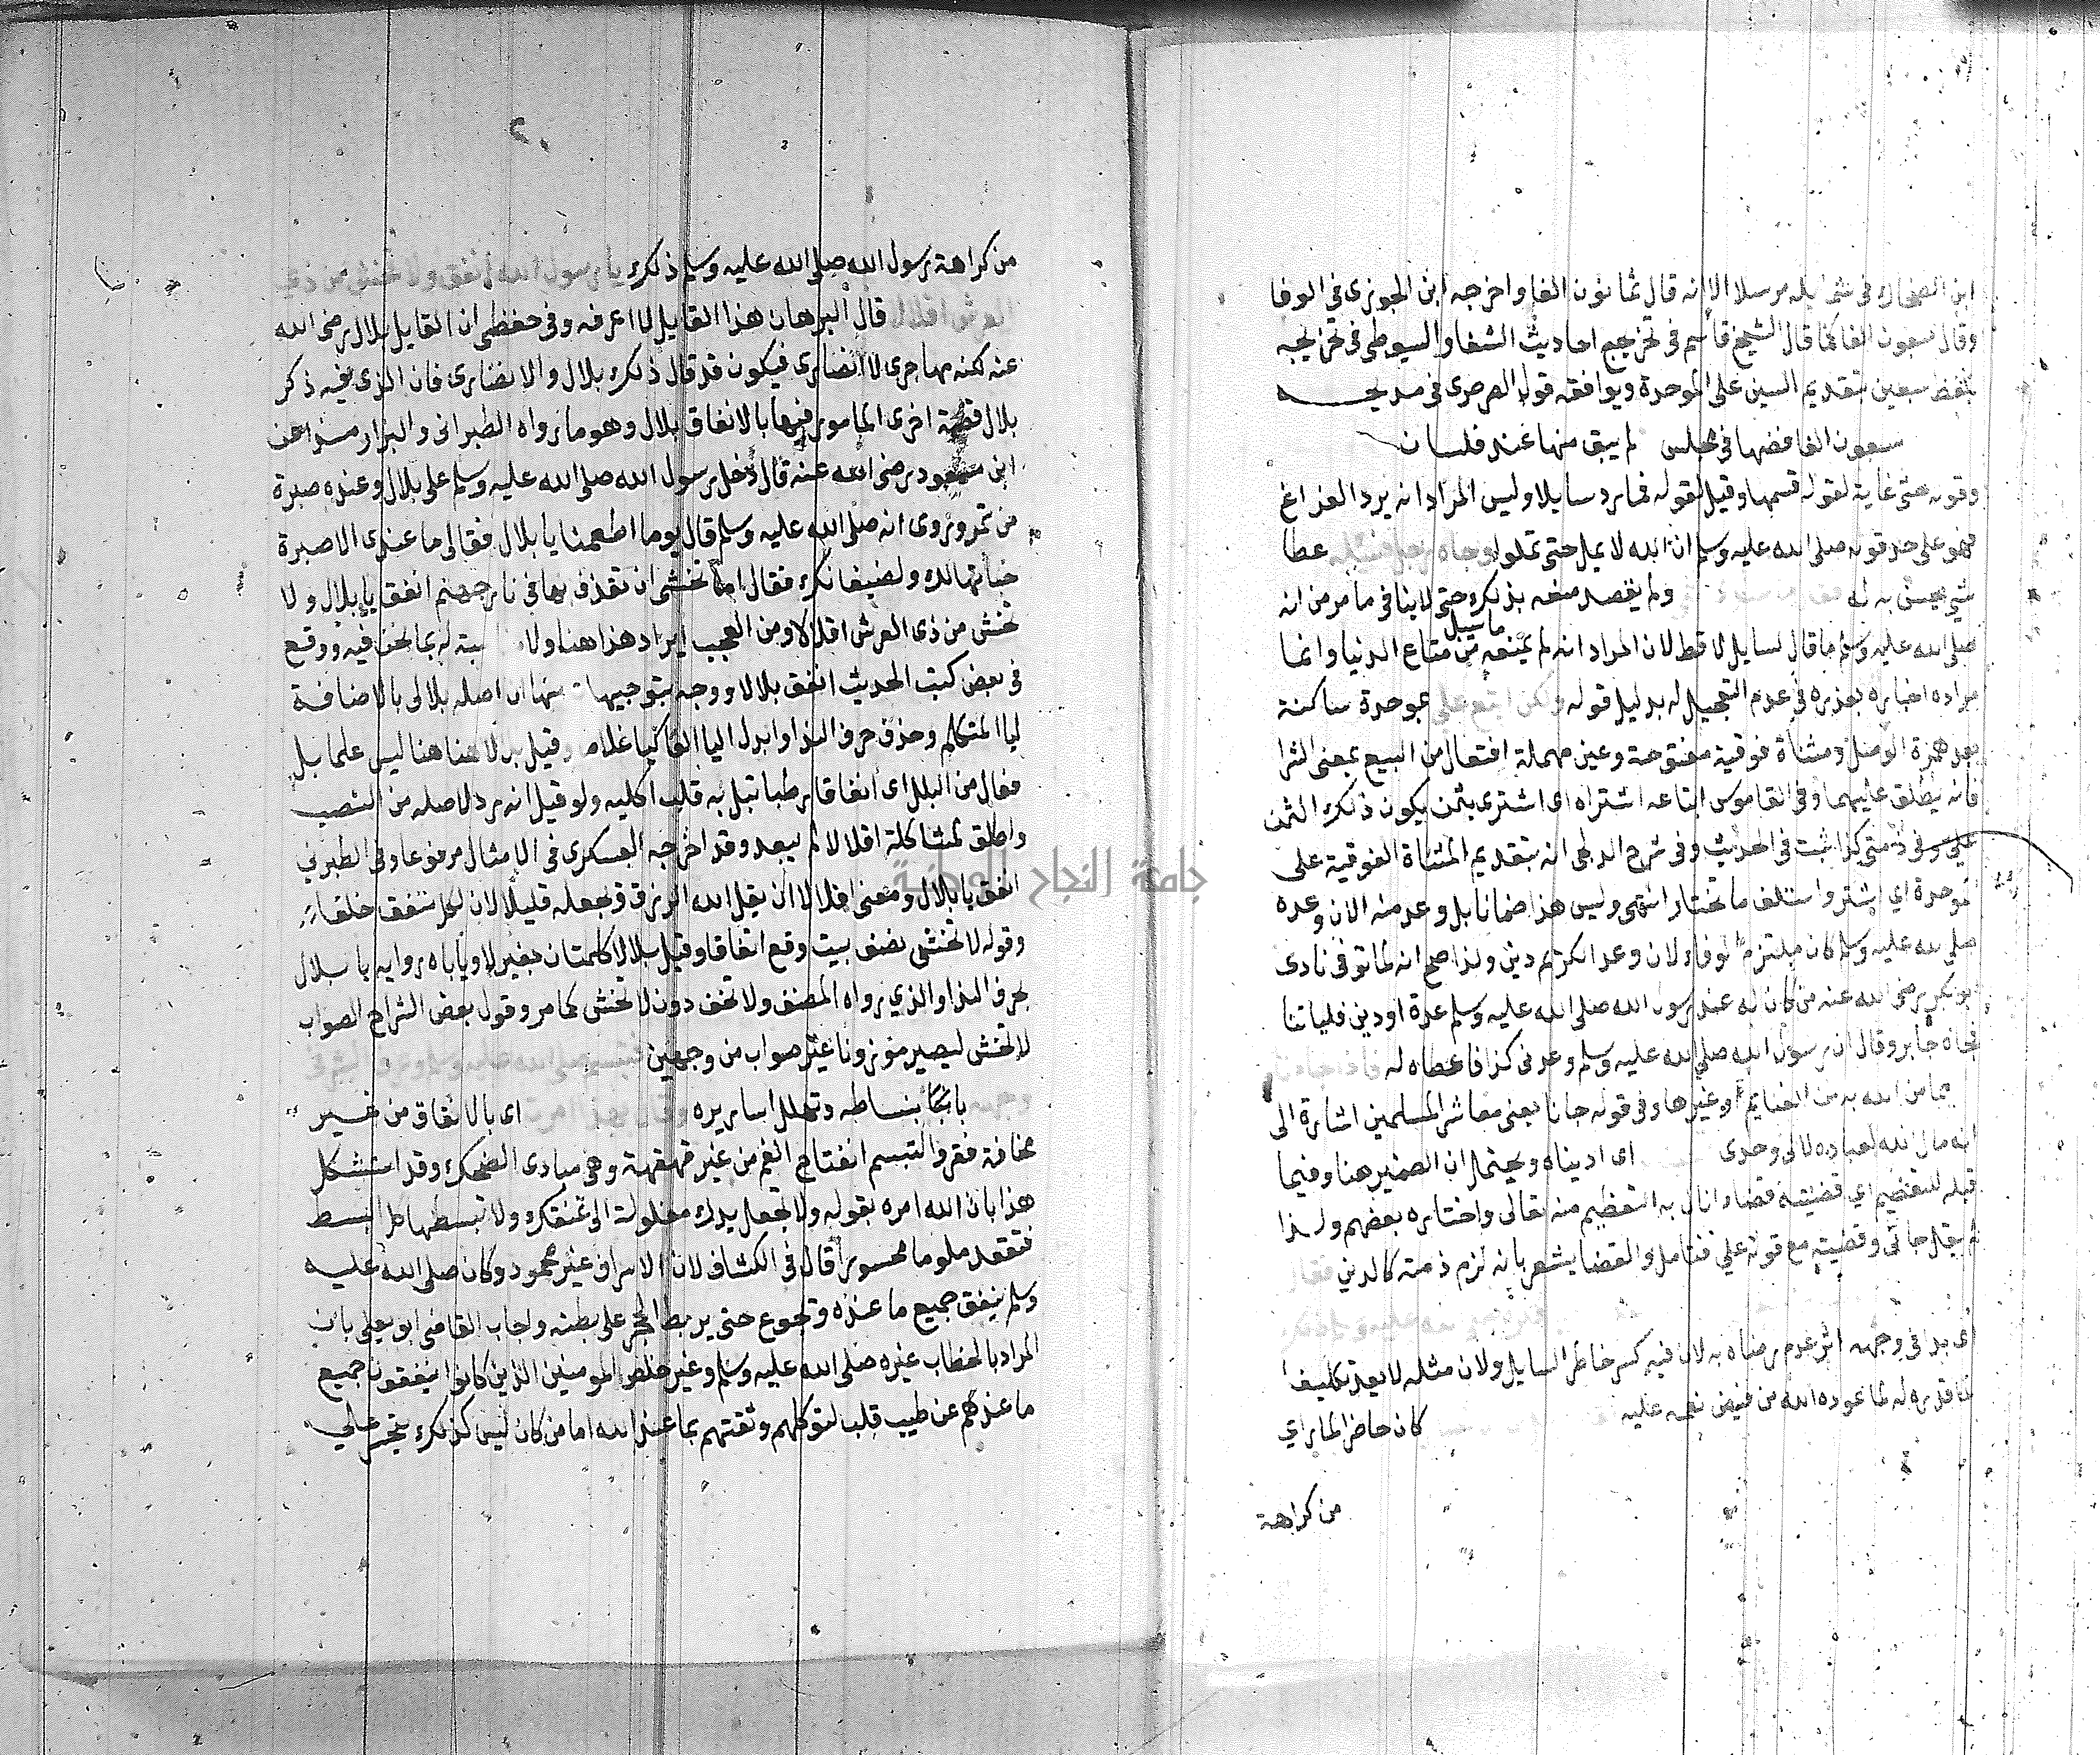 ابن الضحاك في شمايله مرسلا الا انه قال ثمانون الفا واخرجه ابن الجوزي في الوفا
وقال سبعون الفا كما قال الشيخ قاسم في تخريج احاديث الشفا والسيوطي في تخريجه
بلفظ سبعين بتقديم السين على الموحدة ويوافقه قول الصرصري في مديحه
سبعون الفا فضها في مجلس لم يبق منها عنده فلسان
وقوله حتى غاية لقوله قسمها وقيل لقوله فما رد سايلا وليس المراد انه يرد الفراغ
فهو على حد قوله صلى الله عليه وسلم ان الله لا يمل حتى تملوا وجاه رجل فسئله عطا
شي يحسن به له ولم يقصد منعه بذلك حتى لا ينافي ما مر من انه
صلى الله عليه وسلم ما قال لسايل لا قط لان المراد انه لم يمنعه ما سيل من متاع الدنيا وانما
مراده اخباره بعذره في عدم التعجيل له بدليل قوله ولكن ابتع علي بموحدة ساكنة
بعد همزة الوصل ومثناة فوقية مفتوحة وعين مهملة افتعال من البيع بمعنى الشرا
فانه يطلق عليهما وفي القاموس ابتاعه اشتراه اى اشترى بثمن يكون ذلك الثمن
علي وفي ذمتي كذا ثبت في الحديث وفي شرح الدلجي انه بتقديم المثناة الفوقية على
الموحدة اي اشتر واستلف ما تختار انتهى وليس هذا ضمانا بل وعد منه الان وعده
صلى الله عليه وسلم كان ملتزم الوفاء لان وعد الكريم دين ولذا صح انه لما توفي نادى
ابو بكر رضي الله عنه من كان له عند رسول الله صلى الله عليه وسلم عدة او دين فلياتنا
فجاه جابر وقال ان رسول الله صلى الله عليه وسلم وعدني كذا فاعطاه له فاذا جاءنا
مما من الله به من الغنايم او غيرها وفي قوله جانا يعني معاشر المسلمين اشارة الى
انه مال الله لعباده لا لي وحدي اى اديناه ويحتمل ان الضمير هنا وفيما
قبله للتعظيم اي قضيته قضاء انال به التعظيم منه تعالى واختاره بعضهم ولذا
لم يقل جاني وقضيته مع قوله علي فتامل والقضا يشعر بانه لزم ذمته كالدين فقال
اى بدا في وجهه اثر عدم رضاه به لان فيه كسر خاطر السايل ولان مثله لا يعد تكليفا
لما قدره له لما عوده الله من فيض نعمه عليه كان حاضرا لما راي
من كراهة
من كراهة رسول الله صلى الله عليه وسلم ذلك يا رسول الله انفق ولا تخش من ذي
العرش اقلالا قال البرهان هذا القايل لا اعرفه وفي حفظي ان القايل بلال رضي الله
عنه لكنه مهاجرى لا انصارى فيكون قد قال ذلك بلال والانصارى فان الذي فيه ذكر
بلال قصة اخرى المامور فيها بالانفاق بلال وهو ما رواه الطبراني والبزار مسندا عن
ابن مسعود رضي الله عنه قال دخل رسول الله صلى الله عليه وسلم على بلال وعنده صبرة
من تمر وروى انه صلى الله عليه وسلم قال يوما اطعمنا يا بلال فقال ما عندى الا صبرة
خباتها لك ولضيفانك فقال اما تخشى ان تقذف بها في نار جهنم انفق يا بلال ولا
تخش من ذى العرش اقلالا ومن العجب ايراد هذا هنا ولا نسبة له بما نحن فيه ووقع
في بعض كتب الحديث انفق بلالا ووجه بتوجيهات منها ان اصله بلالي بالاضافة
ليا المتكلم وحذف حرف الندا وابدل اليا الفا كيا غلاما وقيل بلالا هنا ليس علما بل
فعال من البلل اى انفاقا رطبا تبل به قلب اكليه ولو قيل انه رد لاصله من النصب
واطلق لمشاكلة اقلالا لم يبعد وقد اخرجه العسكرى في الامثال مرفوعا وفي الطبري
انفق يا بلال ومعنى اقلالا ان يقل الله الرزق ويجعله قليلا لان لكل منفق خلفا
وقوله لا تخشى نصف بيت وقع اتفاقا وقيل بلالا كلمتان بغير لا وياباه روايه يا بلال
بحرف الندا والذي رواه المصنف ولا تخف دون لا تخش كما مر وقول بعض الشراح الصواب
لا تخش ليصير موزونا غير صواب من وجهين فتبسم صلى الله عليه وسلم وعرف البشر في
وجهه بانبساطه وتهلل اساريره وقال بهذا امرت اى بالانفاق من غير
مخافة فقر والتبسم انفتاح الفم من غير قهقهة وهي مبادى الضحك وقد استشكل
هذا بان الله امره بقوله ولا تجعل يدك مغلولة الى عنقك ولا تبسطها كل البسط
فتقعد ملوما محسورا قال في الكشاف لان الاسراف غير محمود وكان صلى الله عليه
وسلم ينفق جميع ما عنده ويجوع حتى يربط الحجر على بطنه واجاب القاضي ابو يعلي بان
المراد بالخطاب غيره صلى الله عليه وسلم وغير خلص المومنين الذين كانوا ينفقون جميع
ما عندهم عن طيب قلب لتوكلهم وثقتهم بما عند الله اما من كان ليس كذلك يتحسر على
جامعة النجاح الوطنية